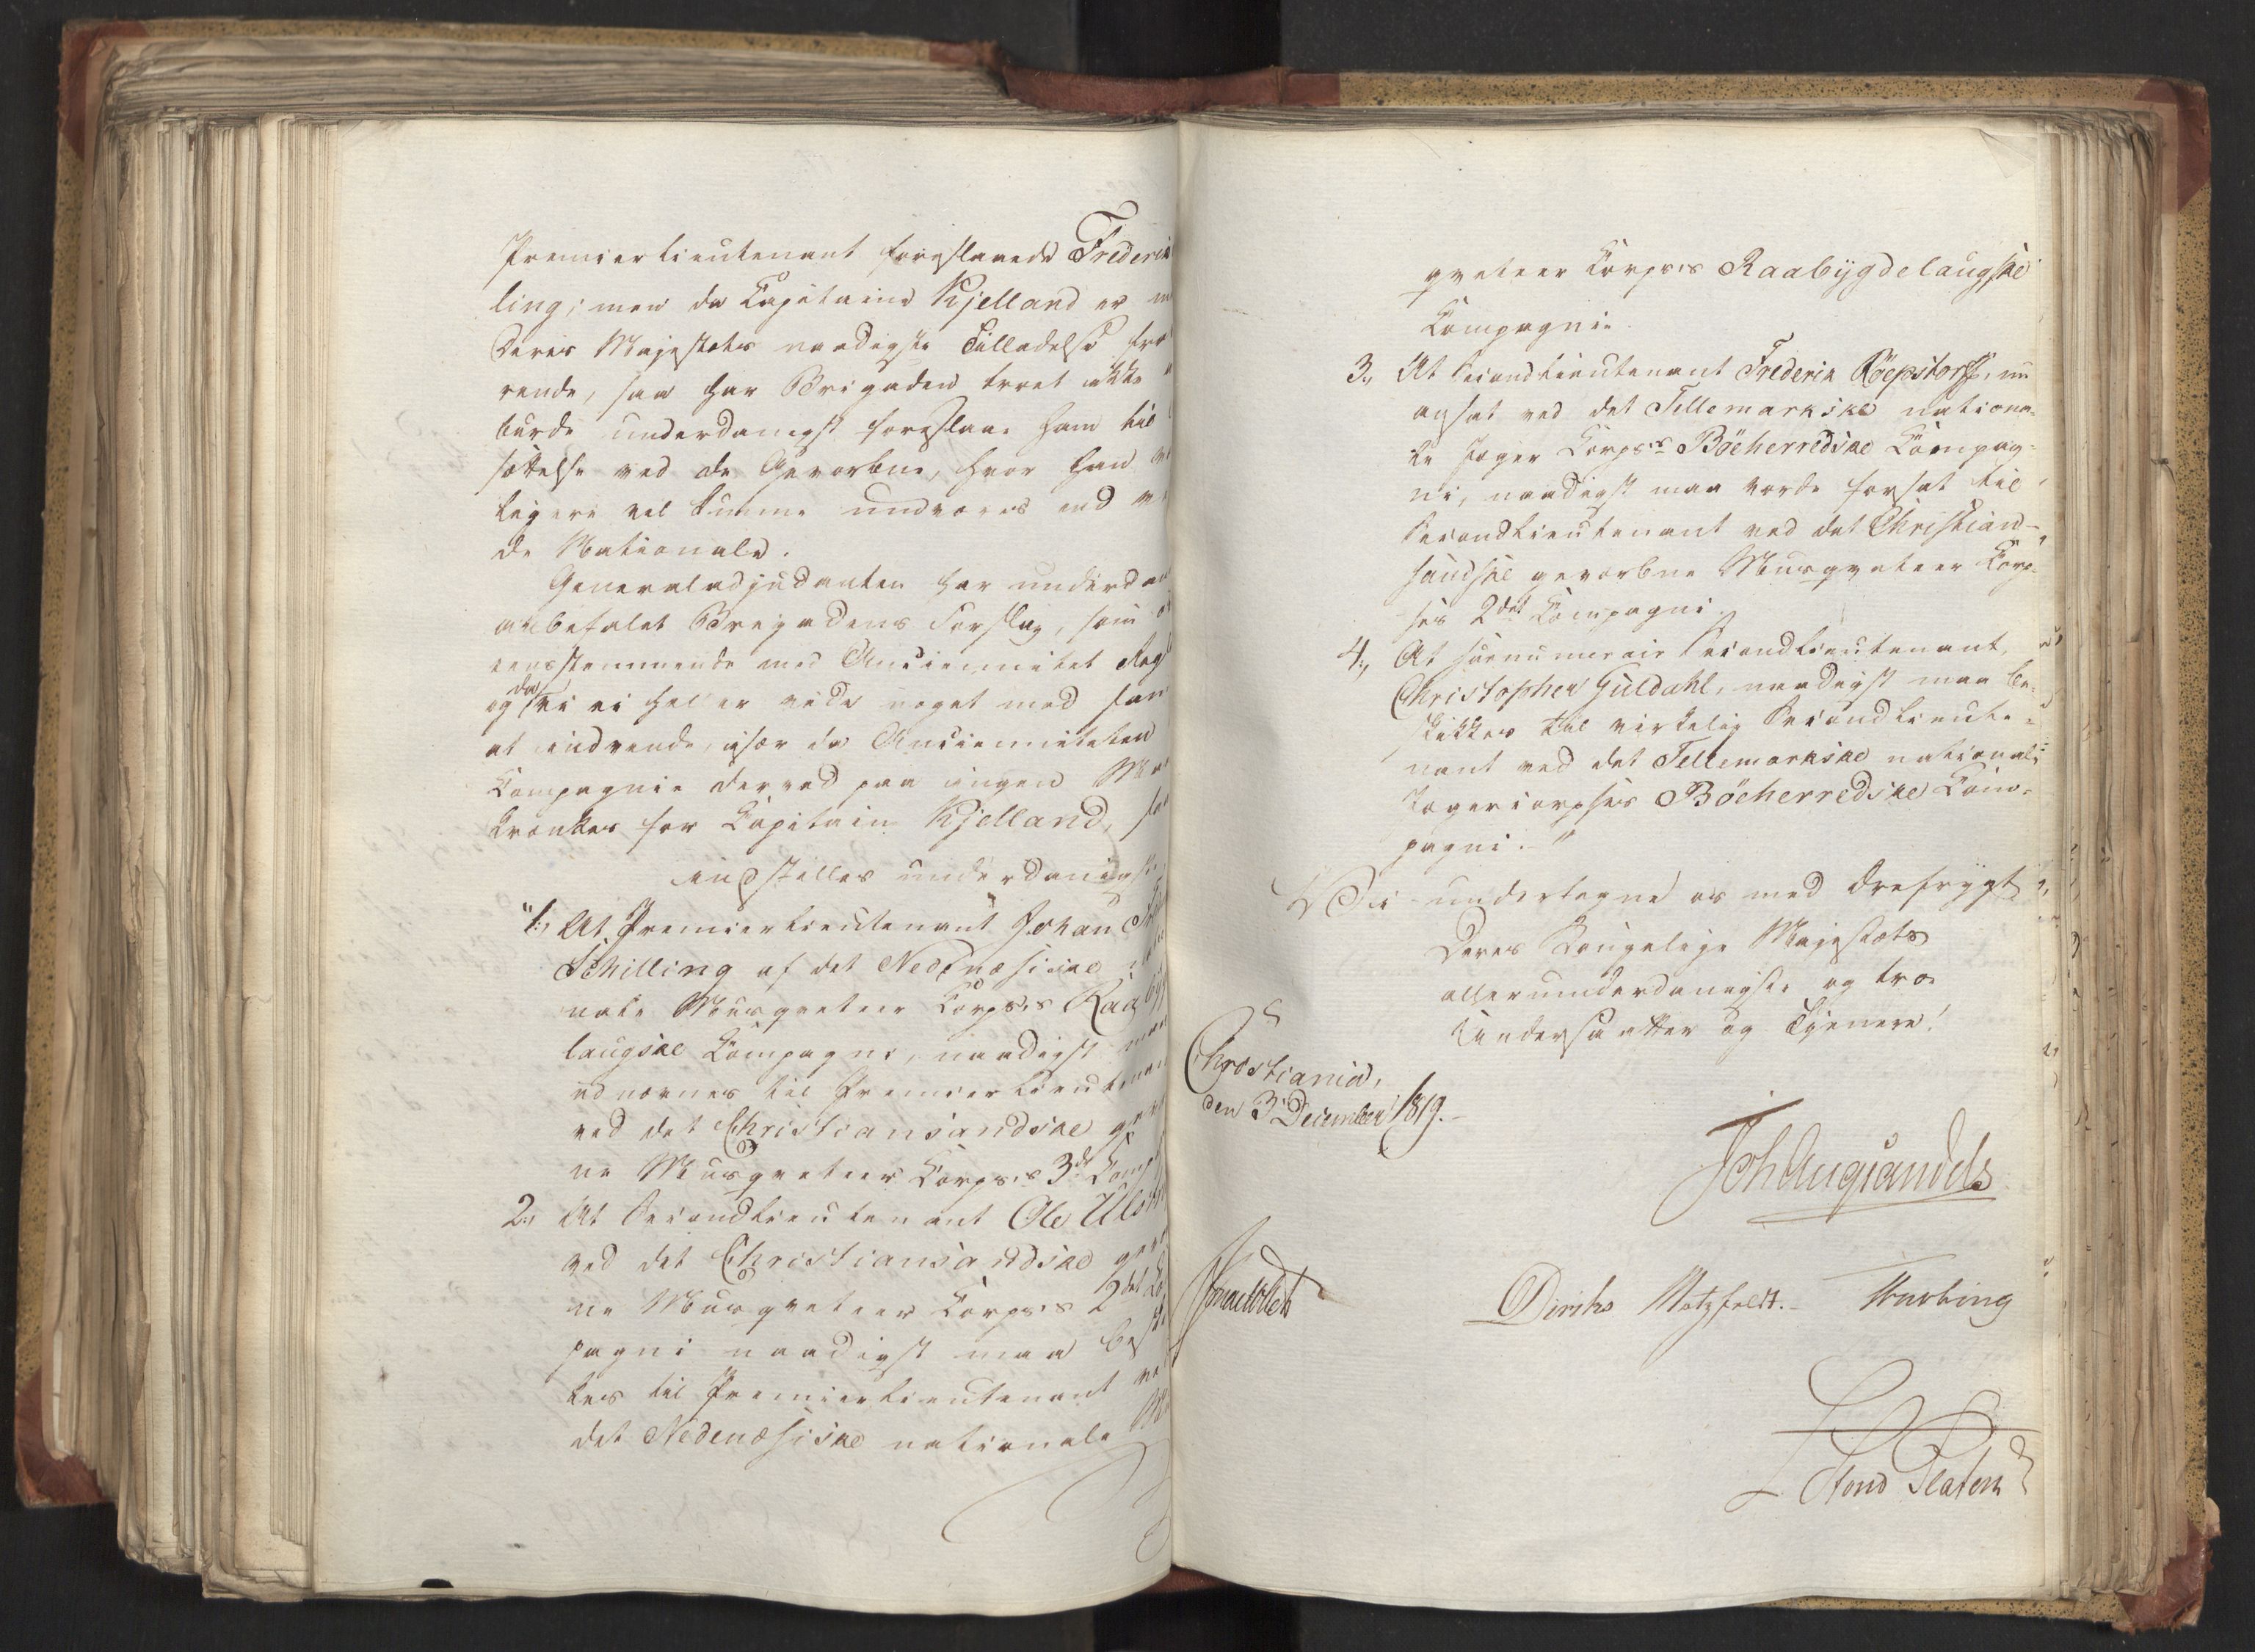 Premierlieutenant foreslaaede Frederik
ling; men da Capitaine Kjelland er
Deres Majestæts naadigste Tilladelse fra
rende, saa har Brigaden troet ikke
burde underdanigst foreslaae ham til
sættelse ved de Gevorbne, hvor han
ligere vel kunne undværes end
de Nationale.
Generaladjudanten har underdan
anbefalet Brigadens Forslag, som
eensstemmende med Anciennitet Regl
og da vi ei heller vide noget mod sam
at indvende, især da Ancienniteten
Compagnie derved paa ingen Maa
krænkes for Capitain Kjelland, saa
indstilles underdanigst:
"1., At Premierlieutenant Johan
Schilling af det Nedenæsiske
nale Musqveteer Corpses Raabyg
laugske Compagni, naadigst maa
udnævnes til Premierlieutenan
ved det Christiansandske gevor
ne Musqveteer Corpses 3de Comp
2., At Secondlieutenant Ole
ved det Christiansandske gevor
ne Musqveteer Corpses 2det Co
pagni naadigst maa beskik
kes til Premierlieutenant ved
det Nedenæsiske nationale
qveteer Corpses Raabygdelaugske
Compagnie.
3., At Secondlieutenant Frederik Röepstorff, nu
ansat ved det Tellemarkske nationa-
le Jæger Corpses Böeherredske Compag-
ni, naadigst maa vorde forsat til
Secondlieutenant ved det Christian-
sandske gevorbne Musqveteer Corp-
ses 2det Compagni.
4., At surnumerair Secondlieutenant,
Christopher Guldahl, naadigst maa be-
skikkes til virkelig Secondlieute-
nant ved det Tellemarkske national-
Jægercorpses Böeherredske Com-
pagni."
Vi undertegne os med Ærefrygt
Deres Kongelige Majestæts
allerunderdanigste og troe
Undersaatter og Tjenere!
Christiania,
den 3 December 1819.
Joh Aug Sandels
Diriks Motzfeldt.
L
von Platen